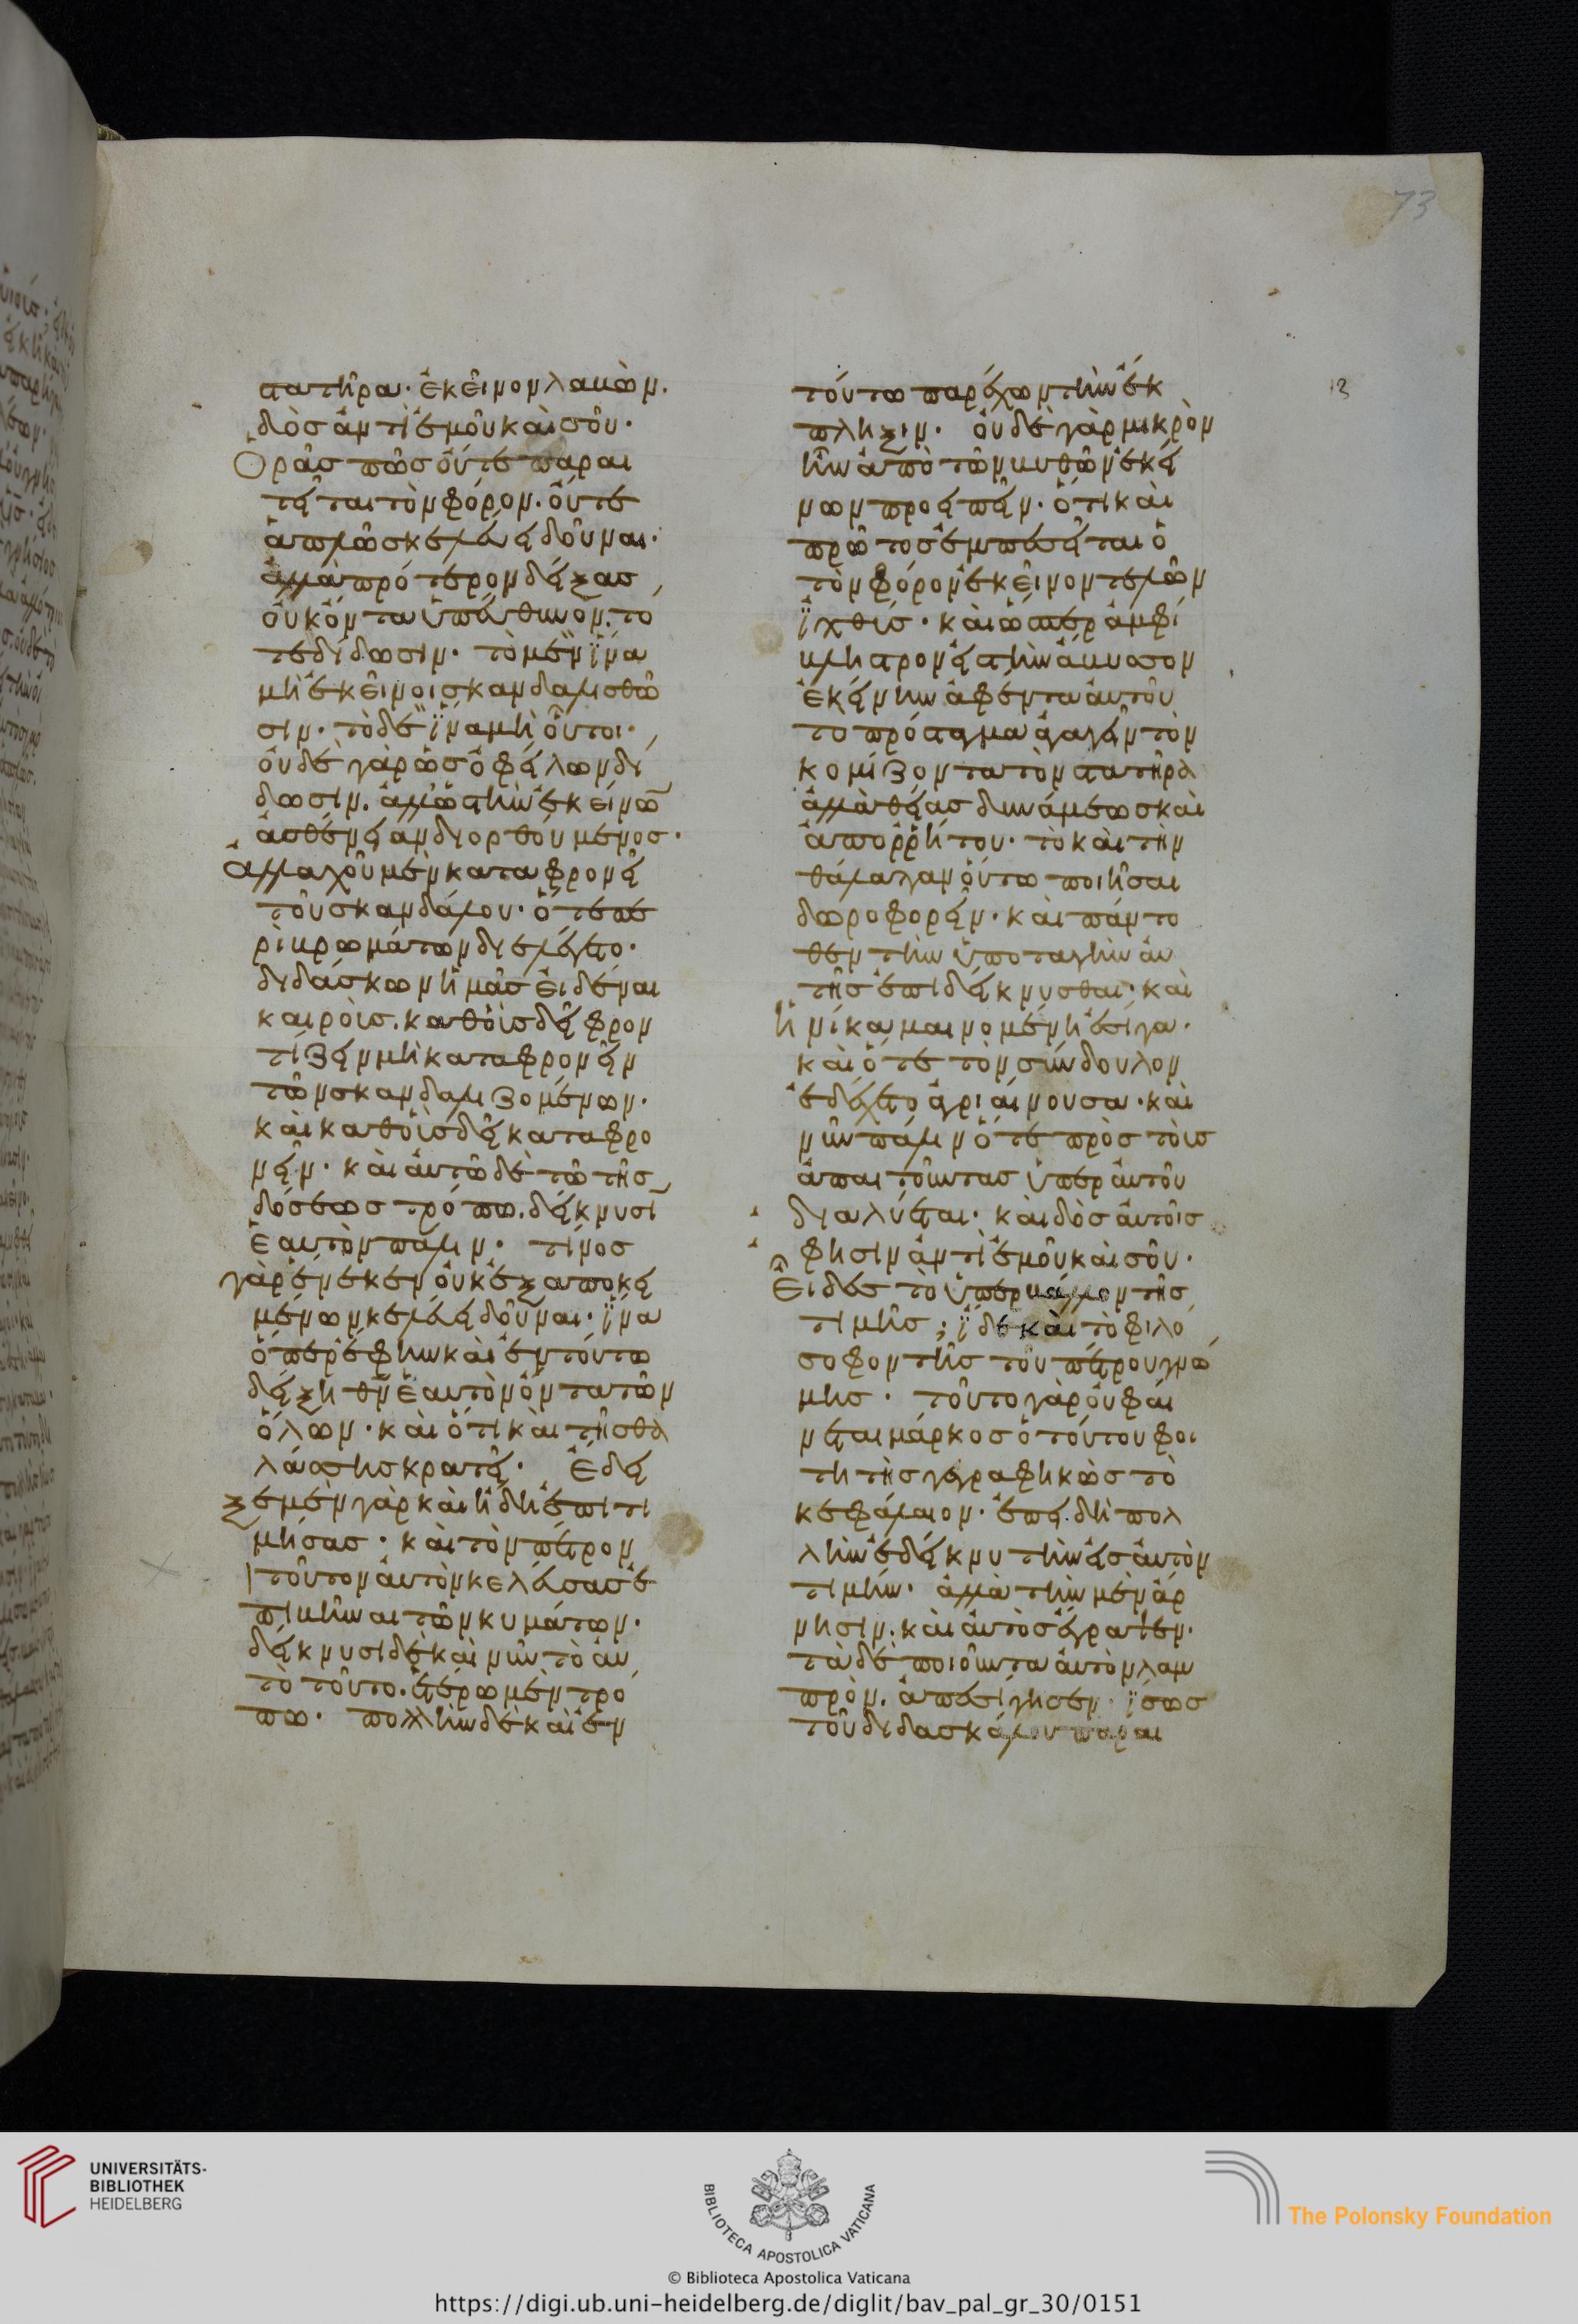 στατῆρα· ἐκεῖνον λαβὼν.
δὸς ἀντὶ ἐμοῦ καὶ σοῦ·
Ὁρᾷς πῶς οὔτε παραι
τεῖται τὸν φόρον. οὔτε
ἁπλῶς κελεύει δοῦναι·
ἀλλὰ πρότερον δείξας
οὐκ ὄντα ὑπεύθυνον. τό
τε δίδωσιν· τὸ μὲν ἵνα
μὴ ἐκεῖνοι σκανδαλισθῶ
σιν· τὸ δὲ ἵνα μὴ οὗτοι·
οὐδὲ γὰρ ὡς ὀφείλων δί
δωσιν. ἀλλ' ὡς τὴν ἐκείνω̅
ἀσθένειαν διορθούμενος·
Ἀλλαχοῦ μὲν καταφρονεῖ
τοῦ σκανδάλου· ὅτε πε
ρὶ βρωμάτων διελέγετο·
διδάσκων ἡμᾶς εἰδέναι
καιροὺς. καθ' οὓς δεῖ φρον
τίζειν μὴ καταφρονεῖν
τῶν σκανδαλιζομένων·
καὶ καθ' οὓς δεῖ καταφρο
νεῖν· καὶ αὐτῷ δὲ τῷ τῆς
δόσεως τρόπῳ. δείκνυσι̅
ἑαυτὸν πάλιν· τίνος
γὰρ ἕνεκεν οὐκ ἐξ ἀποκει
μένων κελεύει δοῦναι· ἵνα
ὅπερ ἔφην καὶ ἐν τούτῳ
δείξῃ θ̅ν̅ ἑαυτὸν ὄντα τῶν
ὅλων· καὶ ὅτι καὶ τῆς θα
λάσσης κρατεῖ· Ἔδει
ξε μὲν γὰρ καὶ ἤδη ἐπιτι
μήσας· καὶ τὸν πέτρον
τοῦτον αὐτὸν κελεύσας ἐ
πιβῆναι τῶν κυμάτων·
δείκνυσι δὲ καὶ νῦν τὸ αὐ
τὸ τοῦτο. ἑτέρῳ μὲν τρό
πῳ· πολλὴν δὲ καὶ ἐν
τούτῳ παρέχων τὴν ἔκ
πληξιν· οὐδὲ γὰρ μικρὸν
ἦν ἀπὸ τῶν βυθῶν ἐκεί
νων προειπεῖν· ὅτι καὶ
πρῶτος ἐμπεσεῖται ὁ
τὸν φόρον ἐκεῖνον τελῶν
ἰχθύς· καὶ ὥσπερ ἀμφί
βληστρον εἰς τὴν ἄβυσσον
ἐκείνην ἀφέντα αὐτοῦ
τὸ πρόσταγμα ἀγαγεῖν τὸν
κομίζοντα τὸν στατῆρα
ἀλλὰ θείας δυνάμεως καὶ
ἀπορρήτου· τὸ καὶ τὴν
θάλασσαν οὕτω ποιῆσαι
δωροφορεῖν· καὶ πάντο
θεν τὴν ὑποταγὴν αὐ
τῆς ἐπιδείκνυσθαι· καὶ
ἡνίκα μαινομένη ἐσίγα·
καὶ ὅτε τὸν σύνδουλον
ἐδέξατο ἀγριαίνουσα· καὶ
νῦν πάλιν ὅτε πρὸς τοὺς
ἀπαιτοῦντας ὑπὲρ αὐτοῦ
διαλύεται· καὶ δὸς αὐτοῖς
φησιν ἀντὶ ἐμοῦ καὶ σοῦ·
Εἶδες τὸ ὑπερβάλλον τῆς
τιμῆς; ἴδε καὶ τὸ φιλό
σοφον τῆς τοῦ πέτρου γνώ
μης· τοῦτο γὰρ οὐ φαί
νεται μάρκος ὁ τούτου φοι
τητὴς γεγραφηκὼς τὸ
κεφάλαιον· ἐπειδὴ πολ
λὴν ἐδείκνυ τὴν εἰς αὐτὸν
τιμήν· ἀλλὰ τὴν μὲν ἄρ
νησιν. καὶ αὐτὸς ἔγραψεν·
τὰ δὲ ποιοῦντα αὐτὸν λαμ
πρόν. ἀπεσίγησεν· ἴσως
τοῦ διδασκάλου παραι
73
UNIVERSITÄTS-
BIBLIOTHEK
HEIDELBERG
BIBLIOTECA APOSTOLICA VATICANA
© Biblioteca Apostolica Vaticana
The Polonsky Foundation
https://digi.ub.uni-heidelberg.de/diglit/bav_pal_gr_30/0151